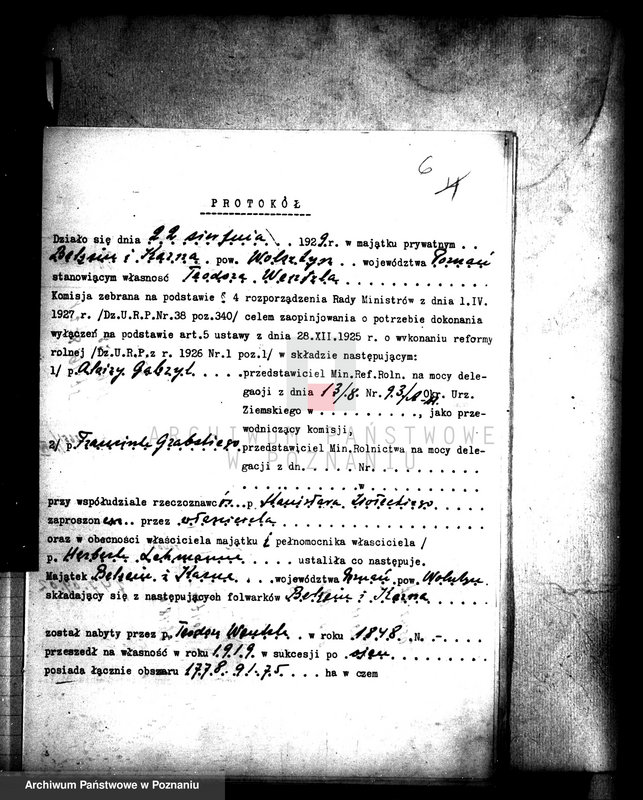 6
4
PROTOKÓŁ
Działo się dnia 22 sierpnia . . 1929.r. w majątku prywatnym . .
Bełzcin i Karna . pow. Wolsztyn . . województwa Poznań
stanowiącym własność Teodora Wentzla . . . . . . . . .
Komisja zebrana na podstawie § 4 rozporządzenia Rady Ministrów z dnia 1.IV.
1927 r. /Dz.U.R.P.Nr.38 poz.340/ celem zaopinjowania o potrzebie dokonania
wyłączeń na podstawie art.5 ustawy z dnia 28.XII.1925 r. o wvkonaniu reformy
rolnej /Dz.U.R.P.z r. 1926 Nr.1 poz.1/ w składzie następującym:
1/ p. Alojzy . . . . . przedstawiciel Min.Ref.Roln. na mocy dele-
gacji z dnia 13/8. Nr. Okr. Urz.
Ziemskiego w . . . . . . . . . . , jako prze-
wodniczący komisji,
2/ p. Franciszek Grabskiego przedstawiciel Min.Rolnictwa na mocy dele-
gacji z dn. . . . . . Nr. . . . . . . . . .
. . . . . . . . . . w . . . . . . . . . .
przy współudziale rzeczoznawc . . p Stanisława
zaproszon . . przez właściciela . . . . . . . . . . . . . . .
oraz w obecności właściciela majątku i pełnomocnika własciciela /
p. Herberta Lehmanna . . . . . ustaliła co następuje.
Majątek Bełzcin i Karna . . . województwa Poznań pow. Wolsztyn
składający się z następujących folwarków Bełzcin i Karna . . . .
został nabyty przez p. Teodor Wentzla . w roku 1848. N. -. . . .
przeszedł na własność w roku 1919. w sukcesji po ojcu . . . . . . .
posiada łącznie obszaru 1778.91.75 . . . . ha w czem
ARCHIWUM PAŃSTWOWE
W POZNANIU
Archiwum Państwowe w Poznaniu